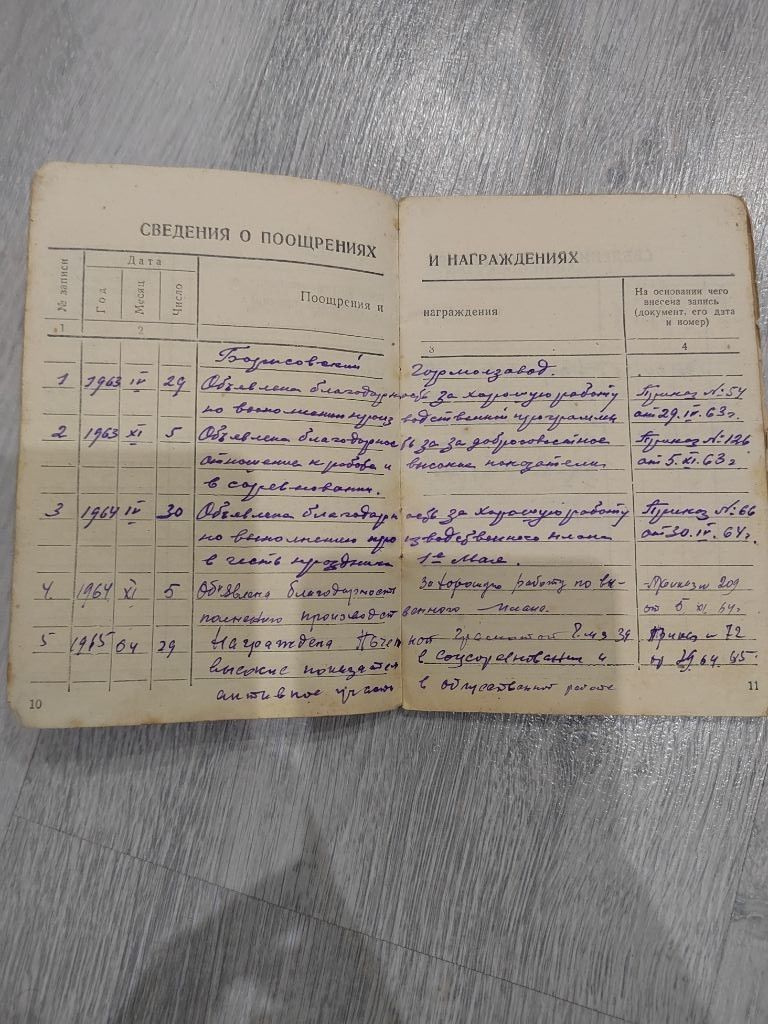 СВЕДЕНИЯ О ПООЩРЕНИЯХ И НАГРАЖДЕНИЯХ
№ записи Дата Поощрения и награждения На основании чего внесена запись (документ, его дата и номер)
Год Месяц Число
1 2 3 4
Борисовский Гормолзавод.
1 1963 IV 29 Объявлена благодарность за хорошую работу Приказ №54
по выполнению производственной программы от 29.IV.63г.
2 1963 XI 5 Объявлена благодарность за за добросовестное Приказ №126
отношение к работе и высокие показатели от 5.XI.63г
в соревновании.
3 1964 IV 30 Объявлена благодарность за хорошую работу Приказ №66
по выполнению производственного плана от 30.IV.64г.
в честь праздника 1е Мая.
4 1964 XI 5 Объявлена благодарность за хорошую работу по вы- Приказ 209
полнению производственного плана. от 5 XI 64г
5 1965 04 29 Награждена Почетной грамотой за Приказ 72
высокие показатели в соцсоревновании и 29 04 65.
активное участие в общественной работе
10 11